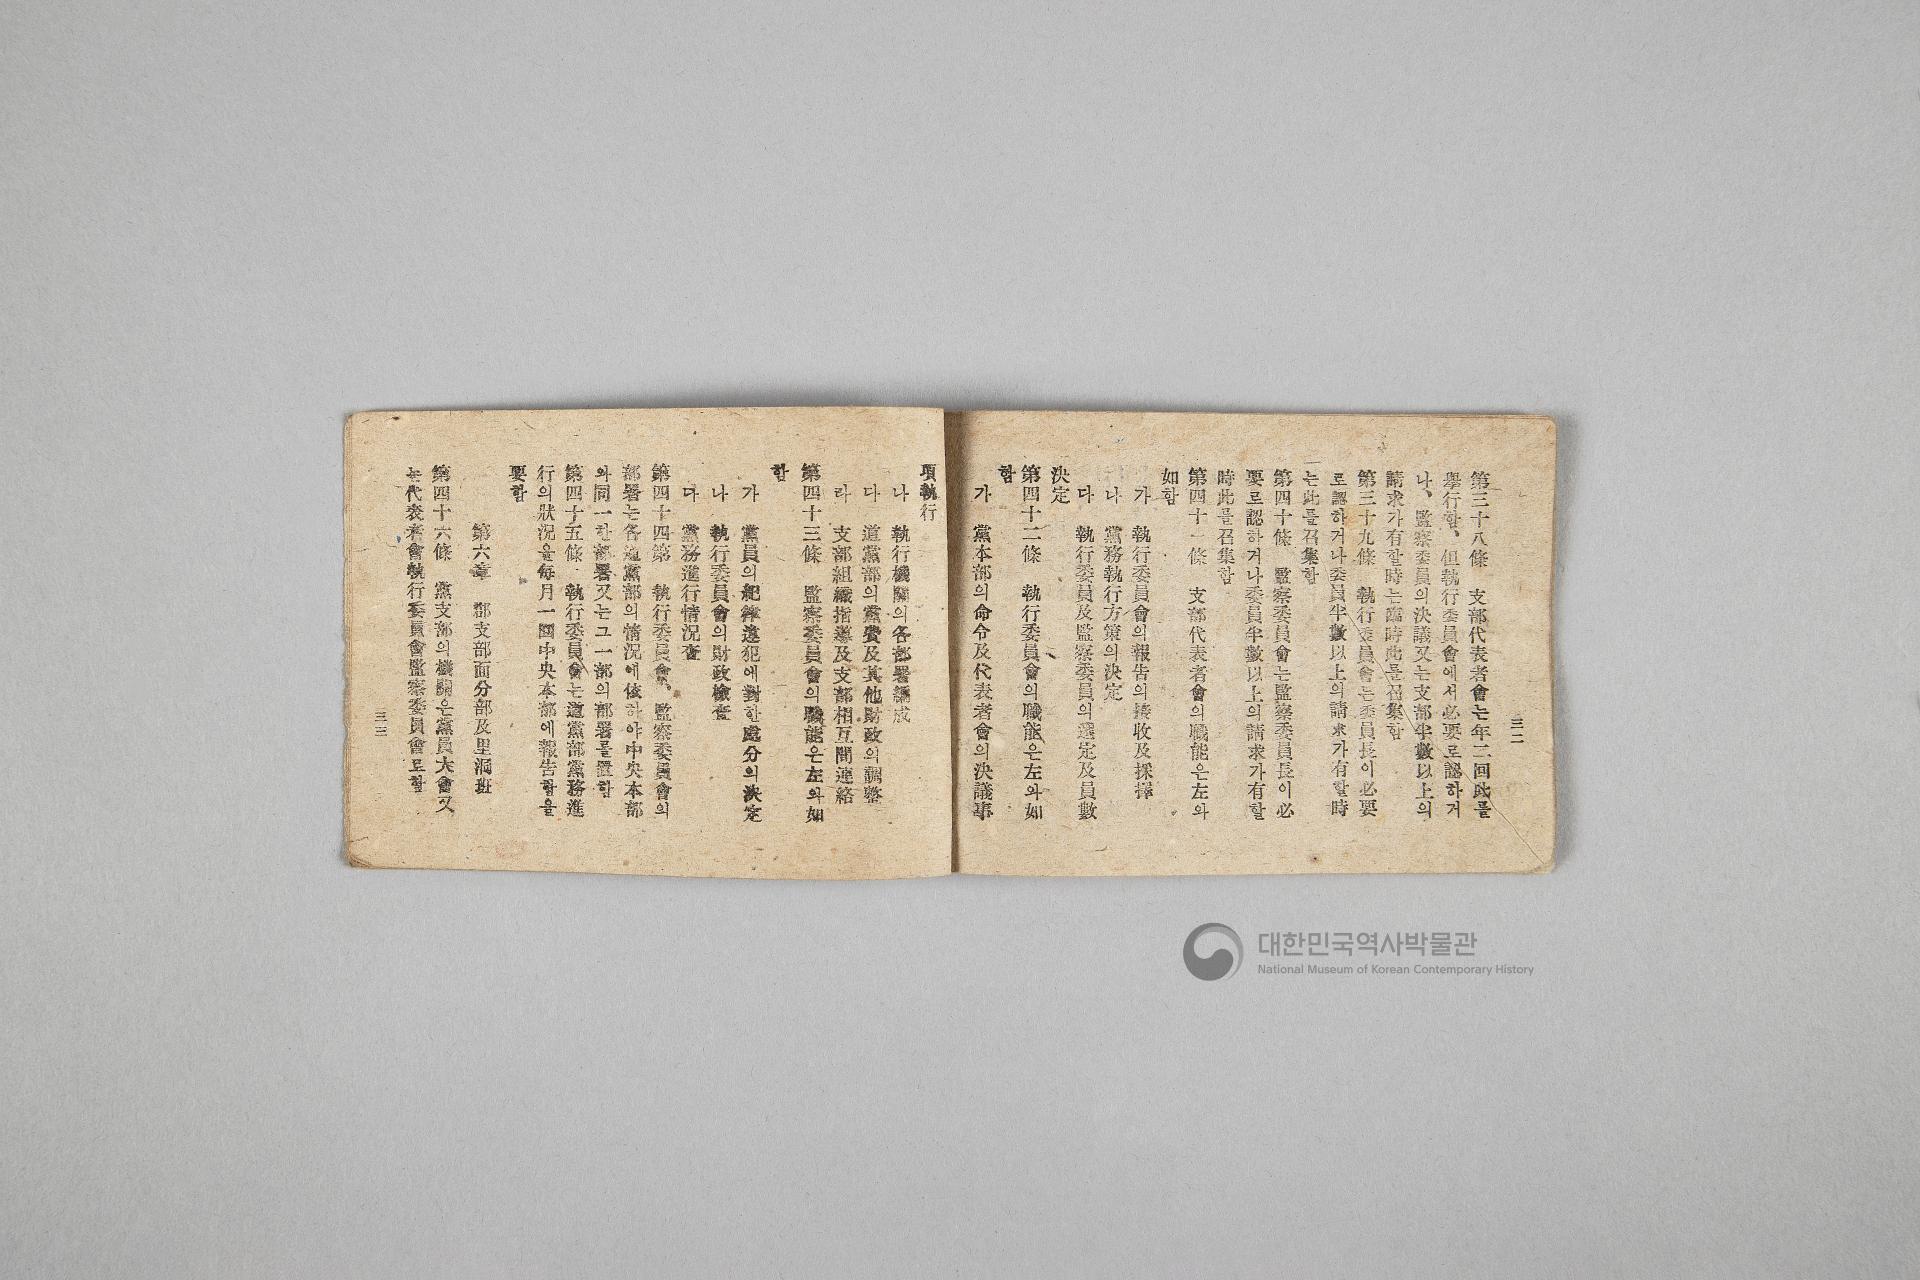 第三十八條 支部代表者會는年二回此를
擧行함、但執行委員會에서必要로認하거
나、監察委員의決議又는支部半數以上의
請求가有할時는臨時此를召集함
第三十九條 執行委員會는委員長이必要
로認하거나委員半數以上의請求가有할時
는此를召集함
第四十條 監察委員會는監察委員長이必
要로認하거나委員半數以上의請求가有할
時此를召集함
第四十一條 支部代表者會의職能은左와
如함
가 執行委員會의報告의接收及採擇
나 黨務執行方策의決定
다 執行委員及監察委員의選定及員數
決定
第四十二條 執行委員會의職能은左와如
함
가 黨本部의命令及代表者會의決議事
三二
項執行
나 執行機關의各部署編成
다 道黨部의黨費及其他財政의調整
라 支部組織指導及支部相互間連絡
第四十三條 監察委員會의職能은左와如
함
가 黨員의紀律違犯에對한處分의決定
나 執行委員會의財政檢査
다 黨務進行情況査
第四十四第 執行委員會、監察委員會의
部署는各道黨部의情況에依하야中央本部
와同一한部署又는그一部의部署를置함
第四十五條 執行委員會는道黨部黨務進
行의狀況을每月一回中央本部에報告함을
要함
第六章 郡支部面分部及里洞班
第四十六條 黨支部의機關은黨員大會又
는代表者會執行委員會監察委員會로함
三三
대한민국역사박물관
National Museum of Korean Contemporary History